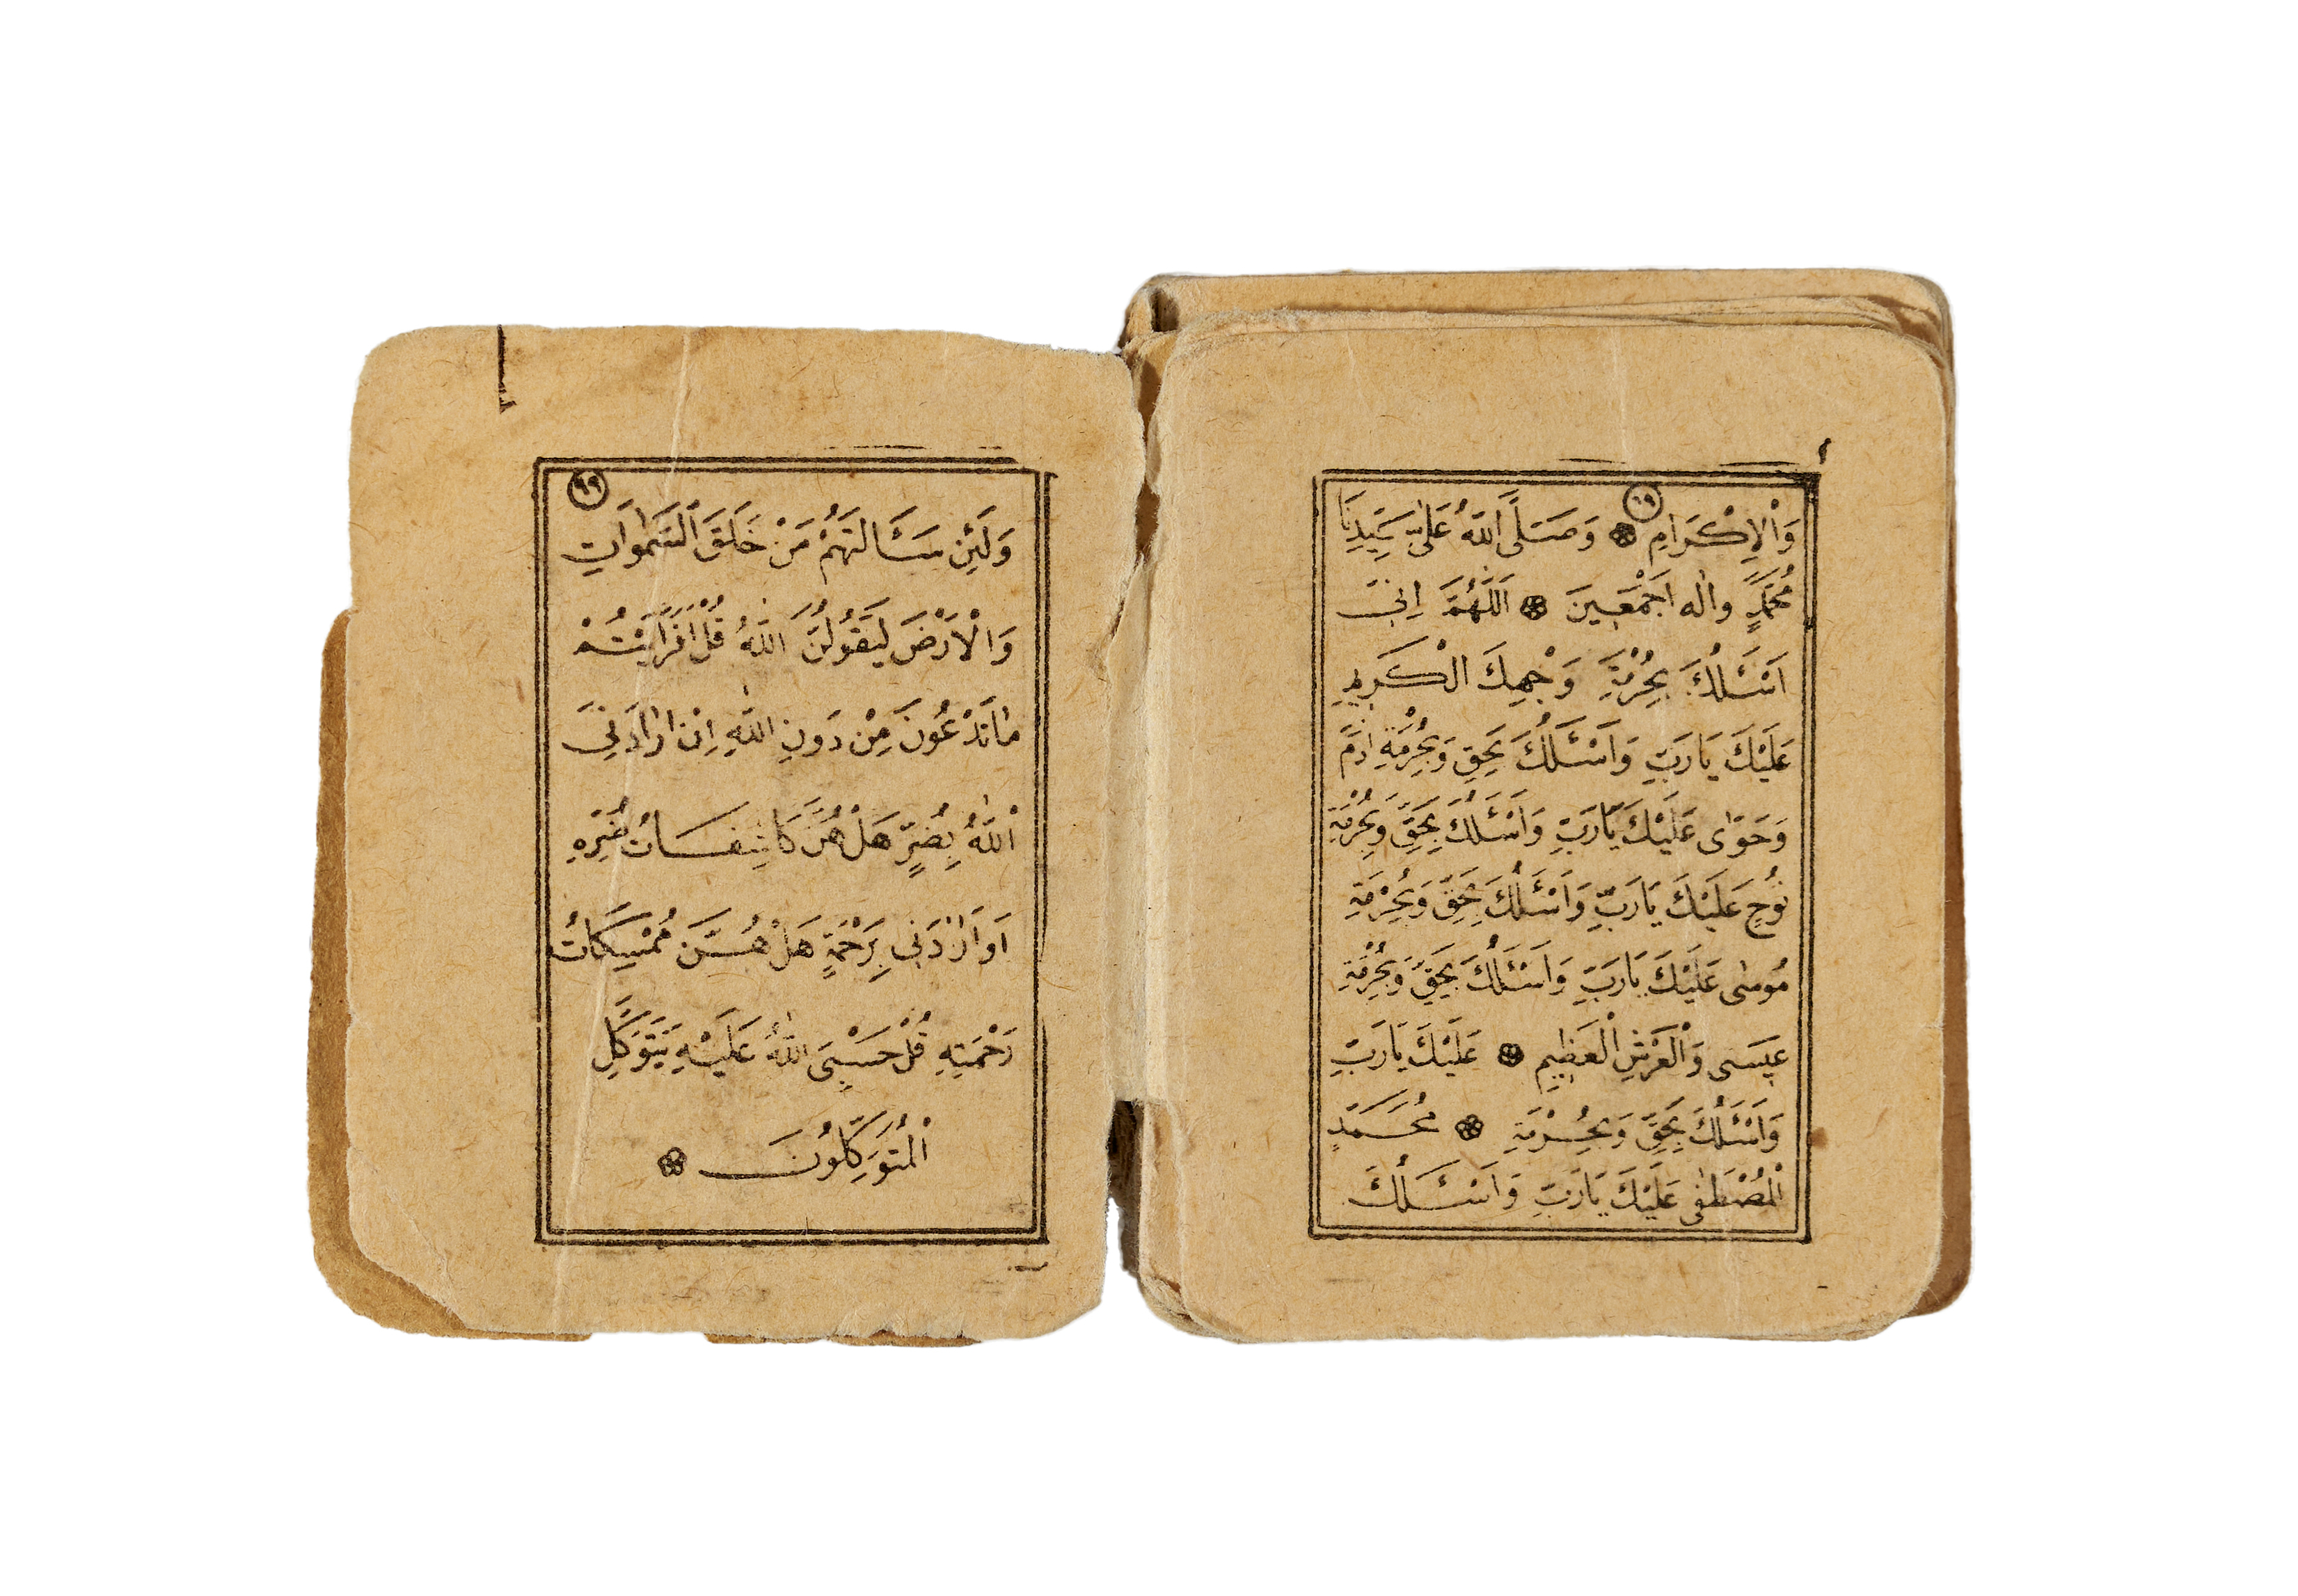 ١٩
وَالْاِكْرَامِ ۞ وَصَلَّى اللّٰهُ عَلٰى سَيِّدِنَا
مُحَمَّدٍ واٰله اَجْمَعِينَ ۞ اَللّٰهُمَّ اِنِّى
اَسْئَلُكَ بِحُرْمَةِ وَجْهِكَ الْكَرِيمِ
عَلَيْكَ يَارَبِّ وَاَسْئَلُكَ بِحَقِّ وَبِحُرْمَةِ اٰدَمَ
وَحَوّٰى عَلَيْكَ يَارَبِّ وَاَسْئَلُكَ بِحَقِّ وَبِحُرْمَةِ
نُوحِ عَلَيْكَ يَارَبِّ وَاَسْئَلُكَ بِحَقِّ وَبِحُرْمَةِ
مُوسٰى عَلَيْكَ يَارَبِّ وَاَسْئَلُكَ بِحَقِّ وَبِحُرْمَةِ
عِيسَى وَالْعَرْشِ الْعَظِيمِ ۞ عَلَيْكَ يَارَبِّ
وَاَسْئَلُكَ بِحَقِّ وَبِحُرْمَةِ ۞ مُحَمَّدٍ
الْمُصْطَفٰى عَلَيْكَ يَارَبِّ وَاَسْئَلُكَ
وَلَئِنْ سَئَالتَهُمْ مَنْ خَلَقَ السَّمٰوَاتِ
وَالْاَرْضَ لَيَقُولُنَّ اللّٰهُ قُلْ اَفَرَاَيْتُمْ
مٰاتَدْعُونَ مِنْ دَوُنِ اللّٰهِ اِنْ اَرٰادَنِىَ
اللّٰهُ بِضُرٍّ هَلْ هُنَّ كَاشِفَاتُ ضُرِّهِ
اَوَاَرٰادَنِى بِرَحْمَةٍ هَلْ هُنَّ مُمْسِكَاتُ
رَحْمَتِهِ قُلْ حَسْبِىَ اللّٰهُ عَلَيْهِ يَتَوَكَّلِ
الْمُتَوَكِّلُونَ ۞